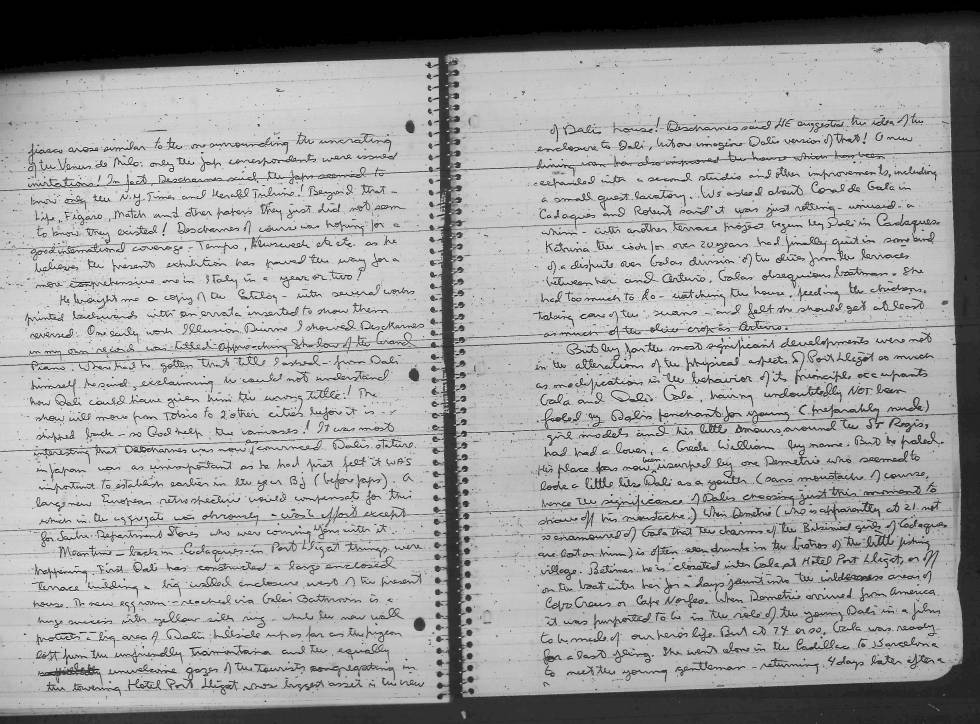 fiasco arose similar to the one surrounding the uncrating
of the Venus de Milo: only the Jap correspondents were issued
invitations! In fact, Descharnes said, the Japs seemed to
know only the N.Y. Times and Herald Tribune! Beyond that -
Life, Figaro, Match and other papers they just did not seem
to know they existed! Descharnes of course was hoping for a
good international coverage - Tempo, Newsweek etc etc. as he
believes the present exhibition has paved the way for a
more comprehensive one in Italy in a year or two?
He brought me a copy of the Catalog - with several works
printed backwards with an errata inserted to show them
reversed. One early work Illusion Diurne I showed Descharnes
in my own record was titled Approaching Shadow of the Grand
Piano. When had he gotten that title I asked - from Dali
himself he said, exclaiming he could not understand
how Dali could have given him the wrong title! The
show will move from Tokio to 2 other cities before it is
shipped back - so God help the canvases! It was most
interesting that Descharnes was now convinced Dali's stature
in Japan was as unimportant as he had first felt it WAS
important to establish earlier in the year BJ (before Japs). A
large new European retrospective would compensate for this
which in the aggregate was obviously wasted effort except
for Seibu Department Stores who were coming                      it.
Meantime - back in Cadaques - in Port Lligat things were
happening. First Dali has constructed a large enclosed
terrace building a big walled enclosure west of the present
house. The new egg room - reached via Gala's Bathroom is a
huge success with yellow silk rug - while the new wall
protects a big area of Dali's hillside up as far as the pigeon
loft from the unfriendly tramontana and the equally
unwelcome gazes of the tourists congregating in
the towering Hotel Port Lligat whose biggest asset is the view
of Dali's house! Descharnes said HE suggested the idea of the
enclosure to Dali, but one imagine Dali's version of that! A new
living room has also improved the house which has been
expanded with a second studio and other improvements, including
a small guest lavatory. We asked about Coral de Gala in
Cadaques and Robert said it was just rotting - unused - a
whim - with another terrace project begun by Dali in Cadaques.
Katrina the cook for over 20 years had finally quit in some kind
of a dispute over Gala's division of the olives from the terraces
between her and Arturo, Gala's obsequious boatman. She
had too much to do - watching the house, feeding the chickens,
taking care of the swans - and felt she should get at least
as much of the olive crop as Arturo.
But by far the most significant developments were not
in the alterations of the physical aspects of Port Lligat so much
as modifications in the behavior of its principle occupants
Gala and Dali. Gala, having undoubtedly NOT been
fooled by Dali's penchant for young (preferably nude)
girl models and his little amours around the St Regis,
had had a lover, a Greek William by name. But he paled.
His place has now been usurped by one Demetrio who seemed to
look a little like Dali as a youth (sans moustache of course,
hence the significance of Dali's choosing just this moment to
shave off his moustache.) When Demetrio (who is apparently at 21 not
so enamoured of Gala that the charms of the Bikinied girls of Cadaques
are lost on him) is often seen drunk in the bistros of the little fishing
village. Betimes he is closeted with Gala at Hotel Port Lligat, or off
on the boat with her for a days jaunt into the wilderness areas of
Cabo Creus or Cape Norfeo. When Demetrio arrived from America
it was purported to be in the role of the young Dali in a film
to be made of our hero's life. But at 74 or so, Gala was ready
for a last fling. She went alone in the Cadillac to Barcelona
to meet the young gentleman - returning 4 days later after a